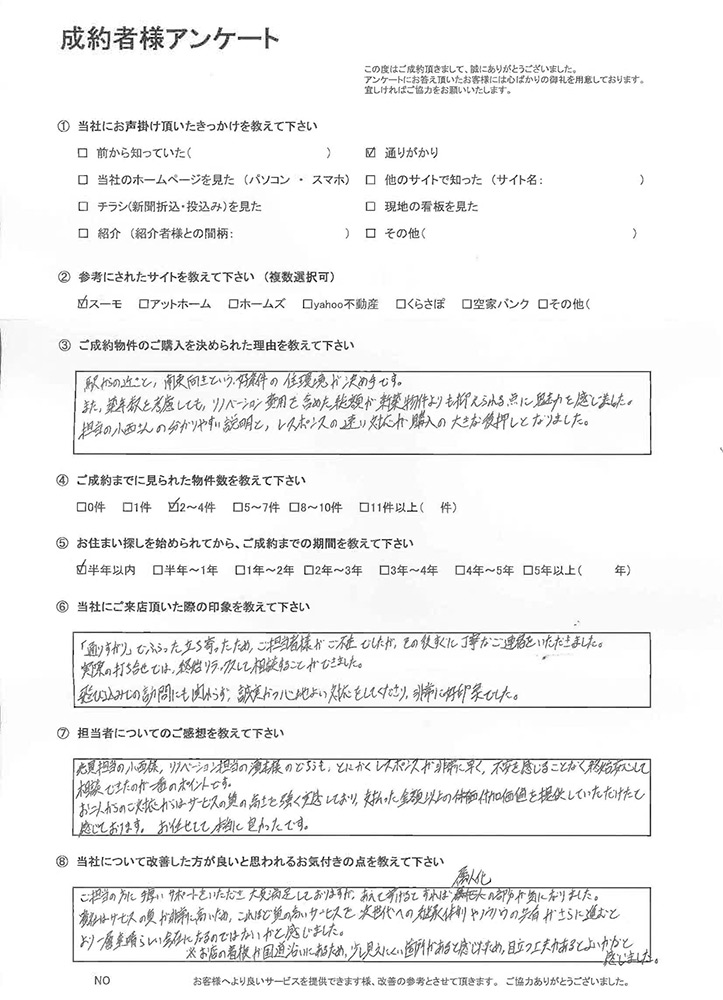 成約者様アンケート
この度はご成約頂きまして、誠にありがとうございました。
アンケートにお答え頂いたお客様には心ばかりの御礼を用意しております。
宜しければご協力をお願いいたします。
① 当社にお声掛け頂いたきっかけを教えて下さい
□ 前から知っていた( ) ☑ 通りがかり
□ 当社のホームページを見た (パソコン ・ スマホ) □ 他のサイトで知った (サイト名: )
□ チラシ(新聞折込・投込み)を見た □ 現地の看板を見た
□ 紹介 (紹介者様との間柄: ) □ その他( )
② 参考にされたサイトを教えて下さい (複数選択可)
☑スーモ □アットホーム □ホームズ □yahoo不動産 □くらさぽ □空家バンク □その他(
③ ご成約物件のご購入を決められた理由を教えて下さい
駅からの近さと、南東向きという好条件の住環境が決め手です。
また、築年数を考慮しても、リノベーション費用を含めた総額が新築物件よりも抑えられる点に魅力を感じました。
担当の小西さんの分かりやすい説明と、レスポンスの速い対応が購入の大きな後押しとなりました。
④ ご成約までに見られた物件数を教えて下さい
□0件 □1件 ☑2～4件 □5～7件 □8～10件 □11件以上( 件)
⑤ お住まい探しを始められてから、ご成約までの期間を教えて下さい
☑半年以内 □半年～1年 □1年～2年 □2年～3年 □3年～4年 □4年～5年 □5年以上( 年)
⑥ 当社にご来店頂いた際の印象を教えて下さい
「通りすがり」でふらっと立ち寄ったため、ご担当者様がご不在でしたが、その後すぐに丁寧なご連絡をいただきました。
実際の打ち合せでは、終始リラックスして相談することができました。
飛び込みでの訪問にも関わらず、誠実かつ心地よい対応をしてくださり、非常に好印象でした。
⑦ 担当者についてのご感想を教えて下さい
売買担当の小西様、リノベーション担当の 様のどちらも、とにかくレスポンスが非常に早く、不安を感じることなく終始安心して
相談できたのが一番のポイントです。
お二人からのご対応からはサービスの質の高さを強く実感しており、支払った金額以上の付加価値を提供していただけたと
感じております。 お任せして本当に良かったです。
⑧ 当社について改善した方が良いと思われるお気付きの点を教えて下さい
ご担当の方に手厚いサポートをいただき大変満足しておりますが、あえて挙げるとすれば属人化の部分が気になりました。
現在はサービスの質が非常に高いため、これほど質の高いサービスを次世代への継承体制やノウハウの共有がさらに進むと
より一層素晴らしい会社になるのではないかと感じました。
※お店の看板が国道沿いにあるため、少し見えにくい箇所があると感じたため、目立つ工夫があるとよいかなと
感じました。
NO お客様へより良いサービスを提供できます様、改善の参考とさせて頂きます。 ご協力ありがとうございました。